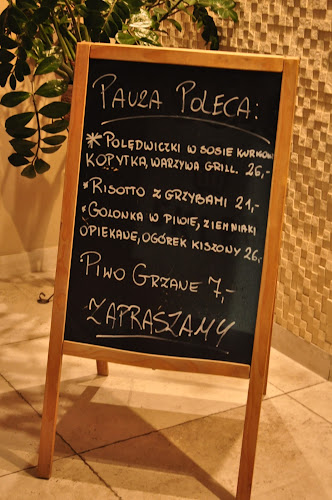 PAUZA POLECA:
* POLĘDWICZKI W SOSIE KURKOWYM
KOPYTKA, WARZYWA GRILL. 26,-
* RISOTTO Z GRZYBAMI 21,-
* GOLONKA W PIWIE, ZIEMNIAKI
OPIEKANE, OGÓREK KISZONY 26,-
PIWO GRZANE 7,-
ZAPRASZAMY